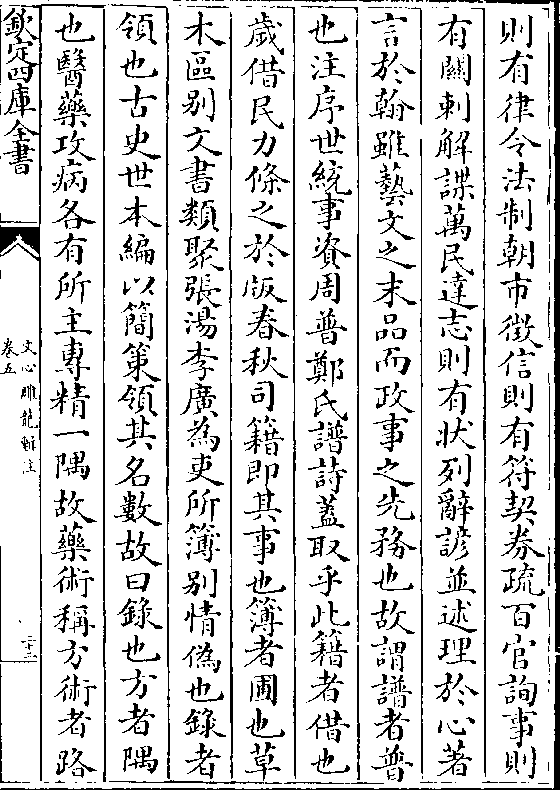 則有律令法制朝市徵信則有符契券疏百官詢事則
有關刺解諜萬民達志則有狀列辭諺並述理於心著
言於翰雖藝文之末品而政事之先務也故謂譜者普
也注序世統事資周普鄭氏譜詩蓋取乎此籍者借也
歲借民力條之於版春秋司籍即其事也簿者圃也草
木區别文書類聚張湯李廣為吏所簿别情偽也錄者
領也古史世本編以簡策領其名數故曰錄也方者隅
也醫藥攻病各有所主專精一隅故藥術稱方術者路
欽定四庫全書
文心雕龍輯注
卷五
二十二